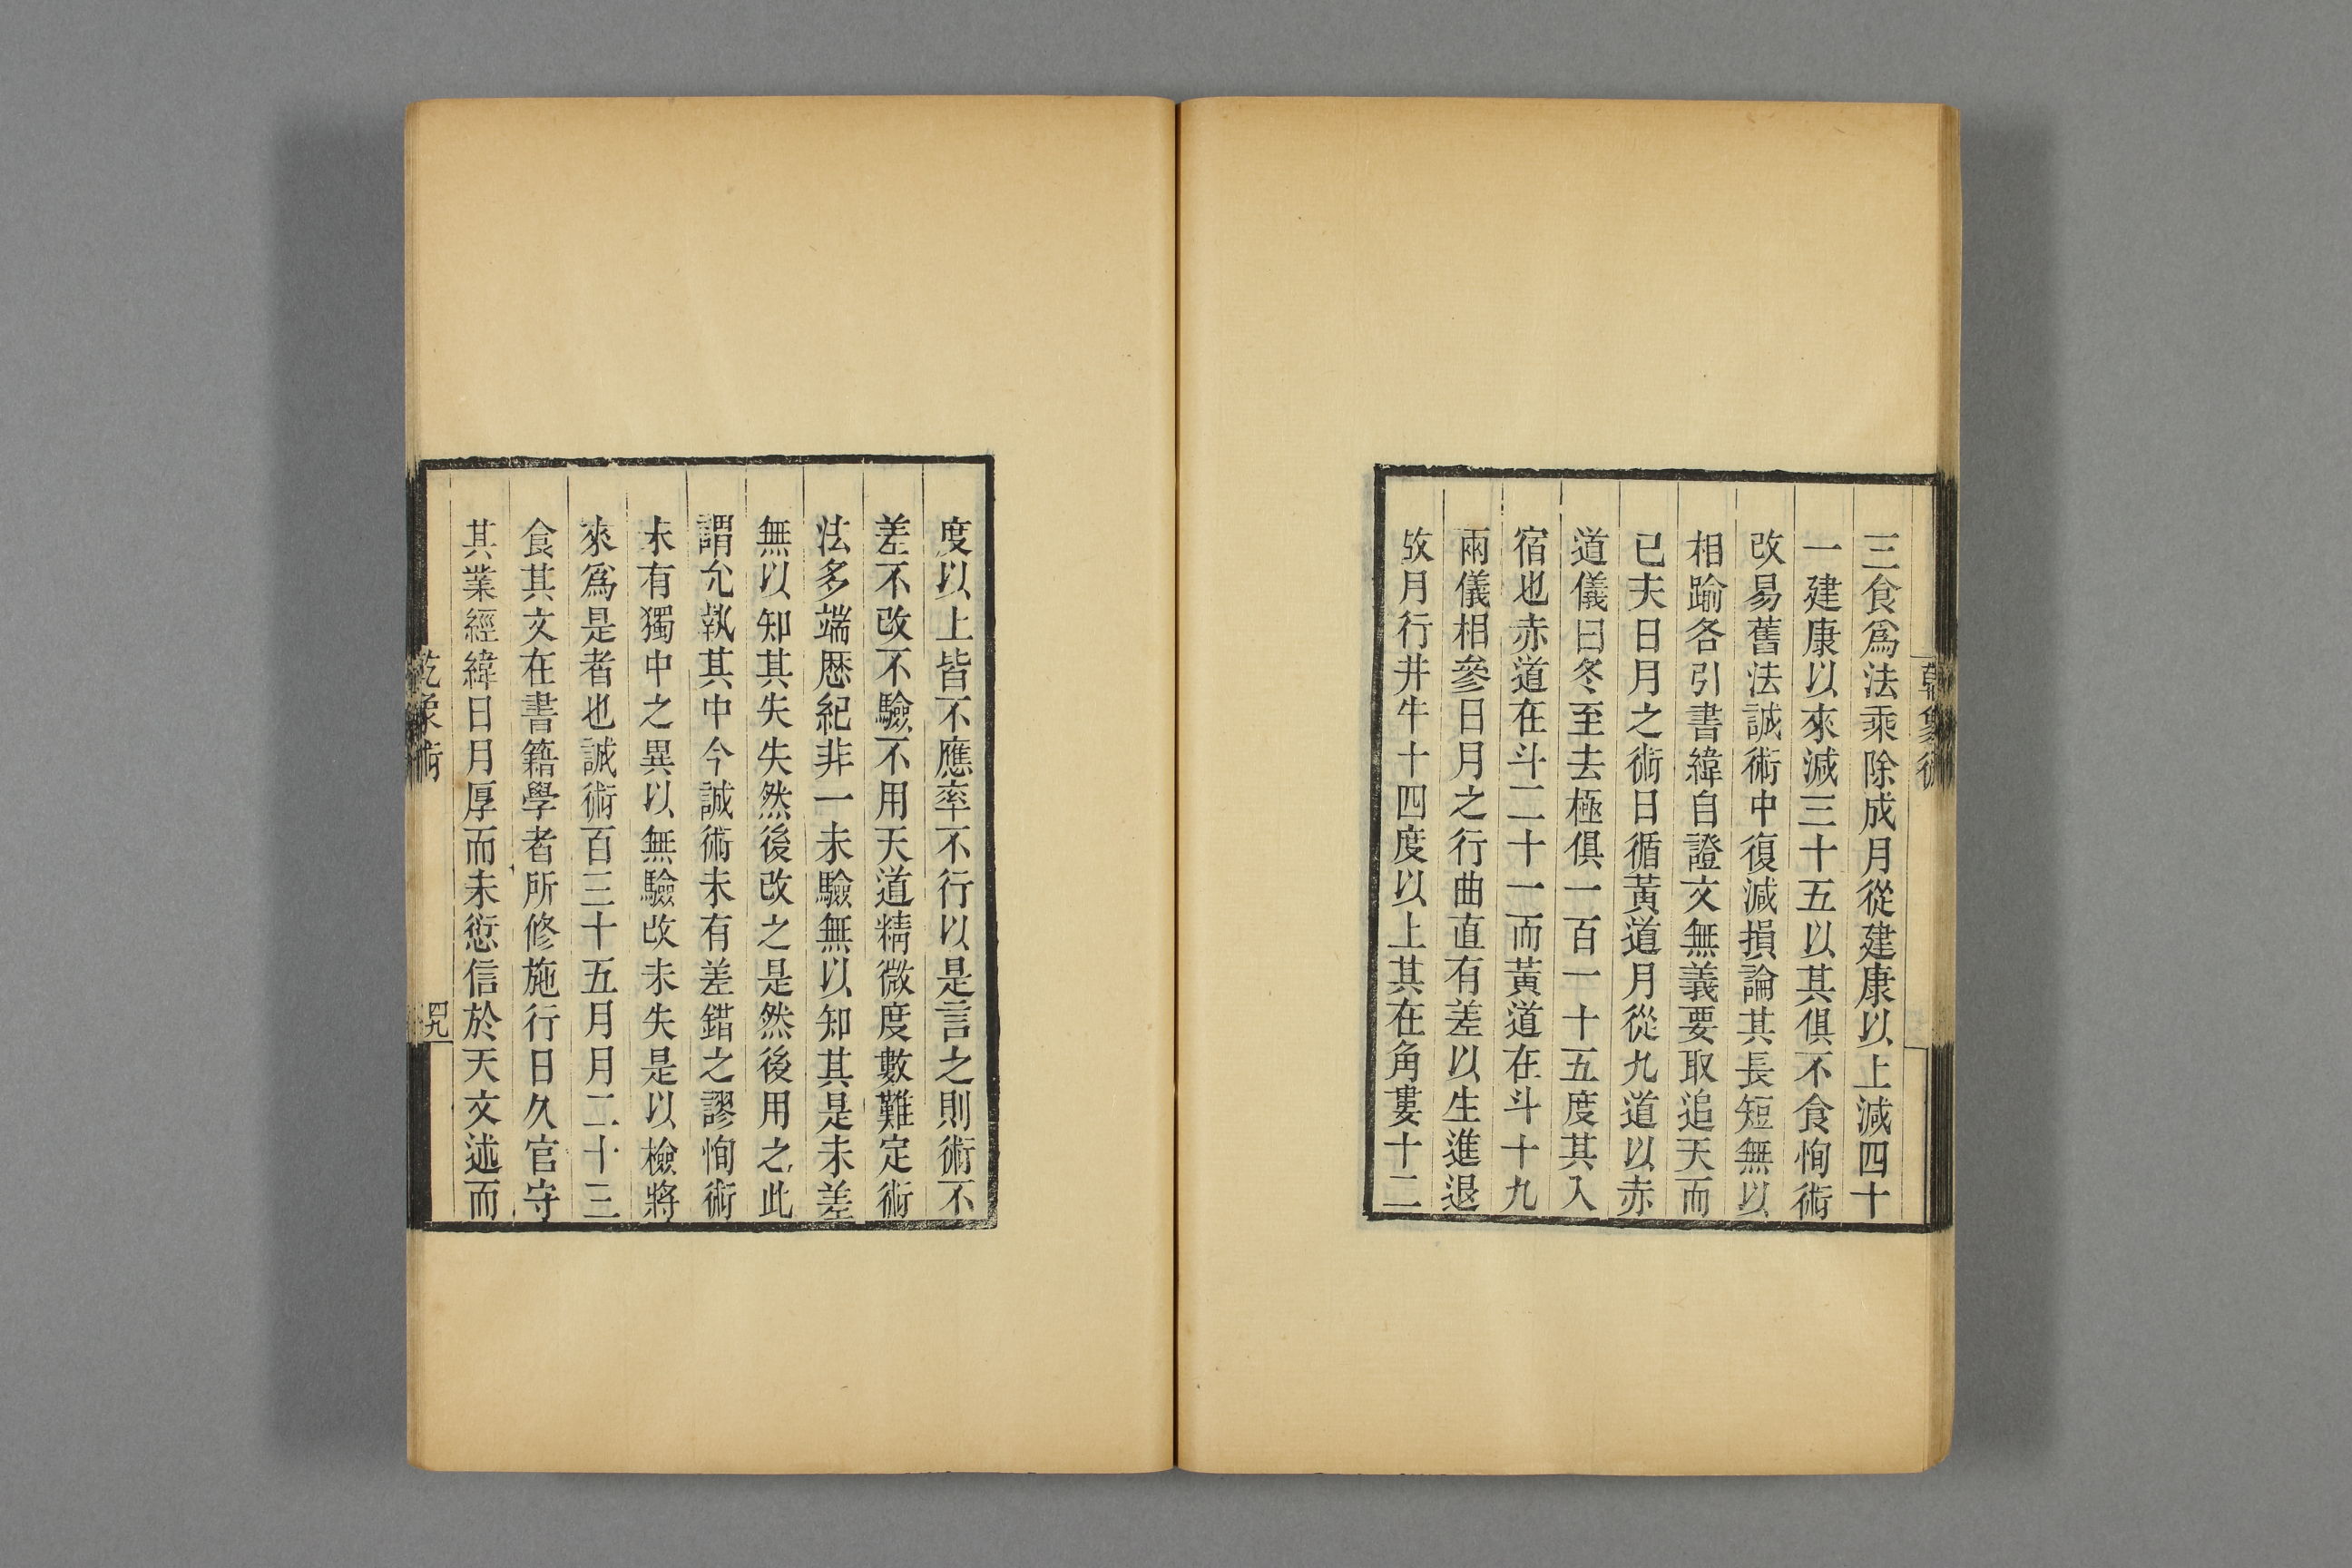 三食爲法乘除成月從建康以上減四十
一建康以來減三十五以其俱不食恂術
改易舊法誠術中復減損論其長短無以
相踰各引書緯自證文無義要取追天而
已夫日月之術日循黃道月從九道以赤
道儀日冬至去極俱一百一十五度其入
宿也赤道在斗二十一而黃道在斗十九
兩儀相參日月之行曲直有差以生進退
故月行井牛十四度以上其在角婁十二
度以上皆不應率不行以是言之則術不
差不改不驗不用天道精微度數難定術
法多端歴紀非一未驗無以知其是未差
無以知其失失然後改之是然後用之此
謂允執其中今誠術未有差錯之謬恂術
未有獨中之異以無驗改未失是以檢將
來爲是者也誠術百三十五月月二十三
食其文在書籍學者所修施行日久官守
其業經緯日月厚而未愆信於天文述而
乾象術